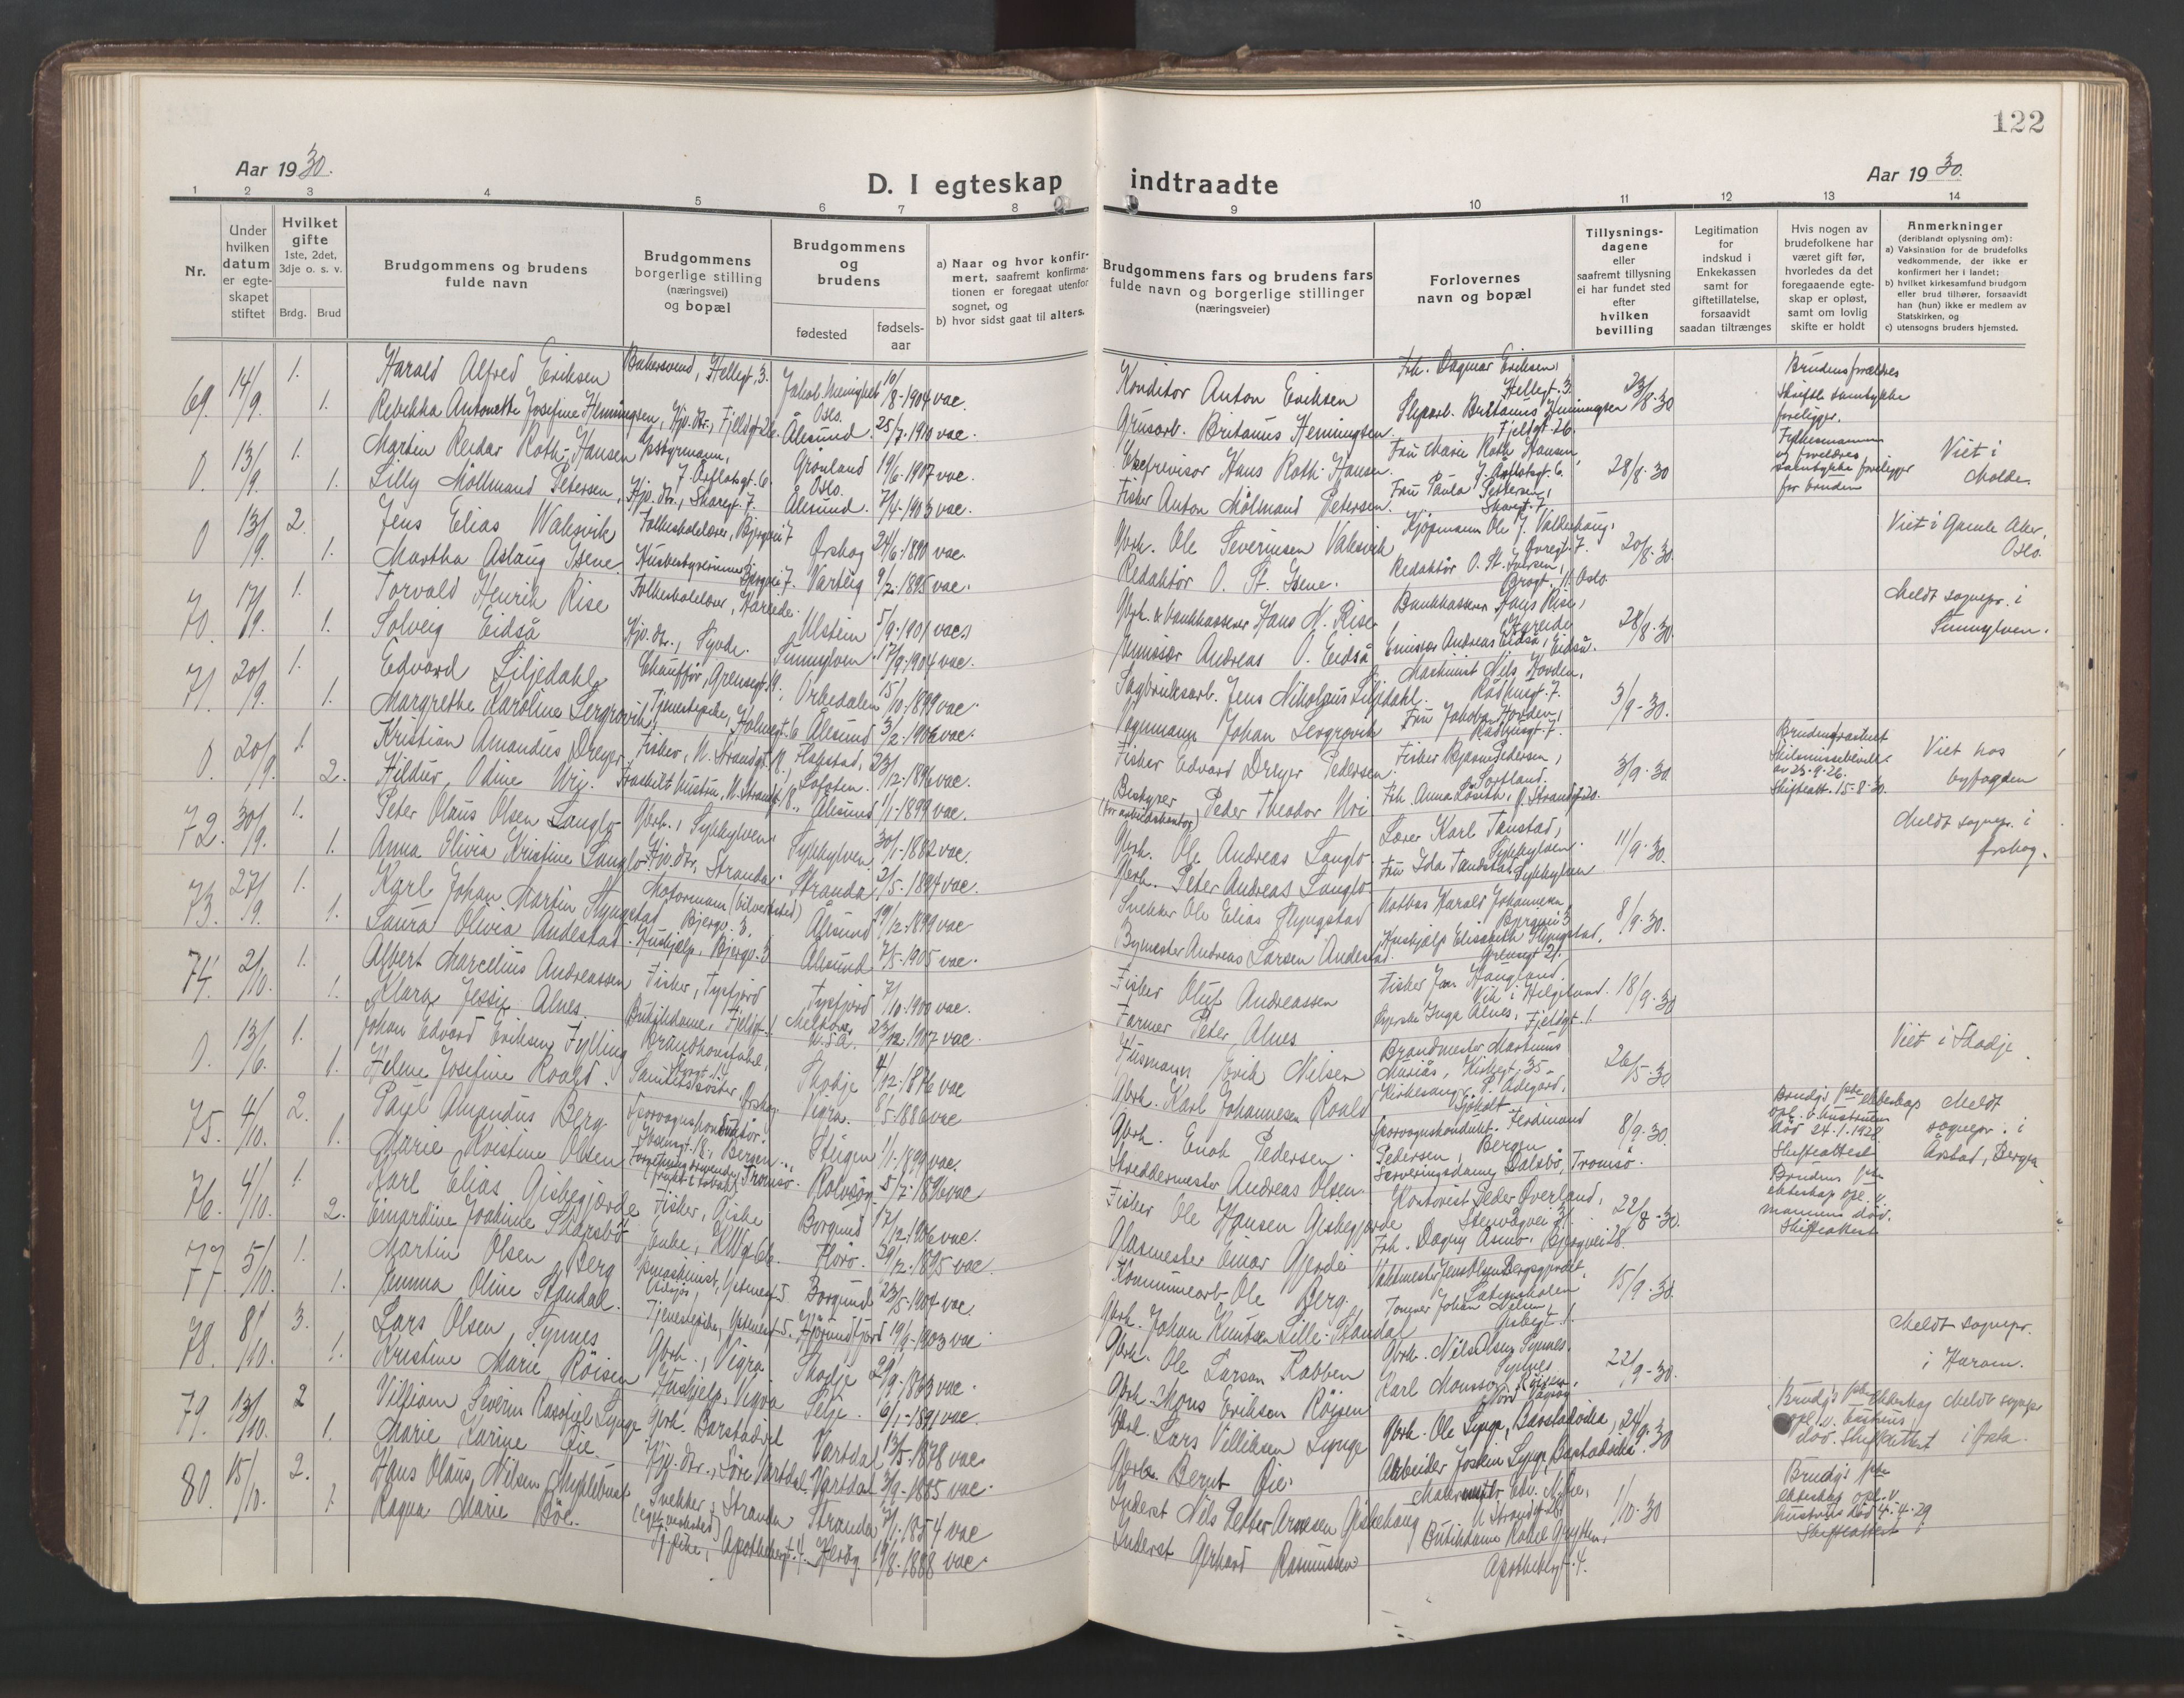 122
Aar 1930.
D. I egteskap indtraadte
Aar 1930.
1 2 3 4 5 6 7 8 9 10 11 12 13 14
Nr.
Under hvilken datum er egteskapet stiftet
Hvilket gifte
1ste, 2det, 3dje o. s. v.
Brdg. Brud
Brudgommens og brudens fulde navn
Brudgommens borgerlige stilling (næringsvei) og bopæl
Brudgommens og brudens
fødested
fødsels-aar
a) Naar og hvor konfirmert, saafremt konfirmationen er foregaat utenfor sognet, og
b) hvor sidst gaat til alters.
Brudgommens fars og brudens fars fulde navn og borgerlige stillinger (næringsveier)
Forlovernes navn og bopæl
Tillysningsdagene eller saafremt tillysning ei har fundet sted efter hvilken bevilling
Legitimation for indskud i Enkekassen samt for giftetillatelse, forsaavidt saadan tiltrænges
Hvis nogen av brudefolkene har været gift før, hvorledes da det foregaaende egteskap er opløst, samt om lovlig skifte er holdt
Anmerkninger
(deriblandt oplysning om):
a) Vaksination for de brudefolks vedkommende, der ikke er konfirmert her i landet;
b) hvilket kirkesamfund brudgom eller brud tilhører, forsaavidt han (hun) ikke er medlem av Statskirken, og
c) utensogns bruders hjemsted.
69. 14/9. 1. Harald Alfred Eriksen Bakersvend, Hellegt. 3. Jakob menighet Oslo. 10/8-1904 vac. Konditor Anton Eriksen Frk. Dagmar Eriksen, Hellegt. 3. 23/8-30
1. Rebekka Antonette Josefine Hemingsen, Hjv. dtr., Fjeldgt. 26. Ålesund. 25/7.1910 vac. Grusarb. Britanus Hemingsen. Britanus Hemmingsen Fjeldgt. 26. Brudens forældres skriftl. samtykke foreligger.
0. 13/9. 1. Martin Reidar Roth-Hansen Grönland Oslo. 19/6-1907 vac. Hans Roth-Hansen. Fru Marie Roth Hansen, 28/8-30
1. Lilly Möllmand Petersen, Hjv. dtr., Skaregt. 7. Ålesund. 7/4-1903 vac. Fisker Anton Mölmand Petersen. Fru Paula Pettersen, Skaregt. 7 Viet i Molde.
0 13/9. 2. Jens Elias Valesvik Folkeskolelærer, Bjørgvei 7 Ørskog 24/6.1890 vac. Gbrk. Ole Severinsen Valesvik Kjøpmann Ole J. 20/8-30. Viet i Gamle Aker, Oslo.
1. Martha Aslaug Isene. Varteig 9/2.1895 vac. Redaktör O. St. Isene. Redaktör O. St. Iversen, Oslo.
70. 17/9. 1. Torvald Henrik Rise Folkeskolelærer, Hareide. Ulstein 5/9.1901 vac. Gbrk. & bankkasserer Hans M. Rise Bankkasserer Hans Rise, Hareide 28/8-30. Meldt sognepr. i Sunnylven.
1. Solveig Eidså Hjv. dtr., Syvde. Sunnylven. 17/9.1904 vac. Emissær Andreas O. Eidså Emissær Andreas Eidså, Eidså.
71. 20/9. 1. Edvard Siljedahl Chauffør, Grensegt. 19. Orkedalen 15/10.1899 vac. Sagbruksarb. Jens Nikolaus Siljedahl. Maskinist Nils Hovden, Rådhusgt. 7. 3/9-30.
1. Margrethe Karoline Lergrovik, Tjenestepike, Ålesund 3/2.1906 vac. Johan Lergrovik Fru Jakoba Hovden, Rådhusgt. 7.
0. 20/9. 1. Kristian Amandus Dreyer. Fisker, N. Strandgt. 18., Hakstad, Lofoten. 23/12.1896 vac. Fisker Edvard Dreyer Pedersen. Fisker Bjarne Pedersen, Sortland. 3/9-30 Viet hos byfogden
2. Hildur Odine Uri. Fraskilt hustru, N. Strandgt. 18. Ålesund 1/1-1899 vac. Bestyrer Peder Theodor Uri Skifteatt. 15-8-30.
72. 30/9. 1. Peter Olaus Olsen Langlo. Gbrk., Sykkylven. Sykkylven. 30/1-1882 vac. Gbrk. Ole Andreas Langlo. Lærer Karl Tandstad, Sykkylven. 11/9-30. Meldt sognepr. i Ørskog.
1. Anna Olivia Kristine Langlo. Hjv. dtr., Stranda. Stranda. 2/5-1894 vac. Gbrk. Peter Andreas Langlo. Fru Ida Tandstad, Sykkylven
73. 27/9. 1. Karl Johan Martin Slyngstad Motormann (bilverksted) Bjørgv. 3. Ålesund 19/12.1899 vac. Snekker Ole Elias Slyngstad Harald Johannesen, Bjørgvei 3 8/9-30.
1. Laura Olivia Andestad. Hushjelp, Bjørgv. 3 Ålesund 7/5-1905 vac. Andreas Larsen Andestad. Hushjelp Elisabeth Slyngstad, Grensegt 21.
74. 2/10. 1. Albert Marcelius Andreassen Fisker, Tysfjord Tysfjord 7/10.1900 vac. Fisker Oluf Andreassen Fisker Jon Haugland, Vik i Helgeland. 18/9-30
1. Klara Jessie Alnes. Butikkdame, Fjeldgt. 1 U.S.A. 23/12.1907 vac. Farmer Peter Alnes Inga Alnes, Fjeldgt. 1.
0. 13/6. 1. Johan Edvard Eriksen Fylling Brandkonstabel, Skodje 4/12.1876 vac Husmann Erik Nilsen Brandmester Martinus Muriås, Kirkegt. 35. 26/5-30 Viet i Skodje
1. Helene Josefine Roald. Sanitetssöster, Ørskog Vigra. 8/5.1886 vac Gbrk. Karl Johannesen Roald Kirkesanger P. Ødegård, Sjøholt.
75. 4/10. 2. Paul Amandus Berg Sporvognskonduktör. Bergen. Steigen 1/1-1899 vac. Gbrk. Enok Pedersen. Sporvognskondukt. Ferdinand Pedersen, Bergen 8/9-30. Brudg's 1ste ekteskap opl. v. hustruen död 24-1-1928. Skifteattest Meldt sognepr. i Årstad, Bergen
1. Marie Kristine Olsen Tromsø. Rolvsöy 5/7.1896 vac Skreddermester Andreas Olsen. Serveringsdame Dalsbö, Tromsö.
76. 4/10. 1. Karl Elias Giskegjerde Fisker, Giske Borgund 17/12.1906 vac. Fisker Ole Hansen Giskegjerde Kontorist Peder Överland, Stenvågvei 31. 22/8-30. Brudens 1ste ekteskap opl. v. mannens död. Skifteattest
2. Einardine Joakime Skarsbö Enke, Florö. 29/12.1895 vac. Glasmester Einar Gjerde Frk. Dagny Asmo, Bjørgvei 28.
77 5/10. 1. Martin Olsen Berg Borgund 23/5-1904 vac. Kommunearb. Ole Berg. 15/9-30.
1. Jemima Oline Standal. Tjenestepike, Hjörundfjord 19/9-1903 vac Gbrk. Johan Knutsen Lille-Standal Tømmer Johan Nilsen, Giskegt. 1.
78. 8/10. 3. Lars Olsen Synnes Gbrk., Vigra. Skodje 29/9-1863 vac. Gbrk. Ole Larsen Rabben Gbrk. Nils Olsen Synnes, Synnes 22/9-30. Meldt sognepr. i Haram.
1. Kristine Marie Röisen Hushjelp, Vigra Selje. 6/1-1891 vac. Gbrk. Mons Eriksen Röisen Karl Monssen Röisen,
79. 13/10. 2 Villiam Severin Rasofiel Lyngø Gbrk. Barstadvik Vartdal 13/5-1878 vac. Gbrk. Lars Villiksen Lyngø Gbrk. Ole Lyngø, Barstadvika, 24/9-30 Brudg's 1ste ekteskap opl. v. hustrus död. Skifteattest Meldt sognepr. i Ørsta.
1. Marie Karine Øie. Hjv. dtr., Söre Vartdal. Vartdal 3/9-1885 vac. Gbrk. Bernt Øie. Arbeider Jostein Lyngø, Barstadvika
80. 15/10. 2. Hans Olaus Nilsen Myklebust Snekker, Stranda (eget verksted) Stranda 7/1-1854 vac Inderst Nils Petter Arnesen Giskehaug Malermester Edv. Myhre, N Strandgt. 26. 1/10-30 Brudg's 1ste ekteskap opl. v. hustrus död 4-4-29 Skifteattest
1. Ragna Marie Böe. Tj. pike, Apothekergt. 4. Heröy. 19/8.1888 vac. Inderst Gerhard Rasmussen Butikkdame Apothekergt. 4.